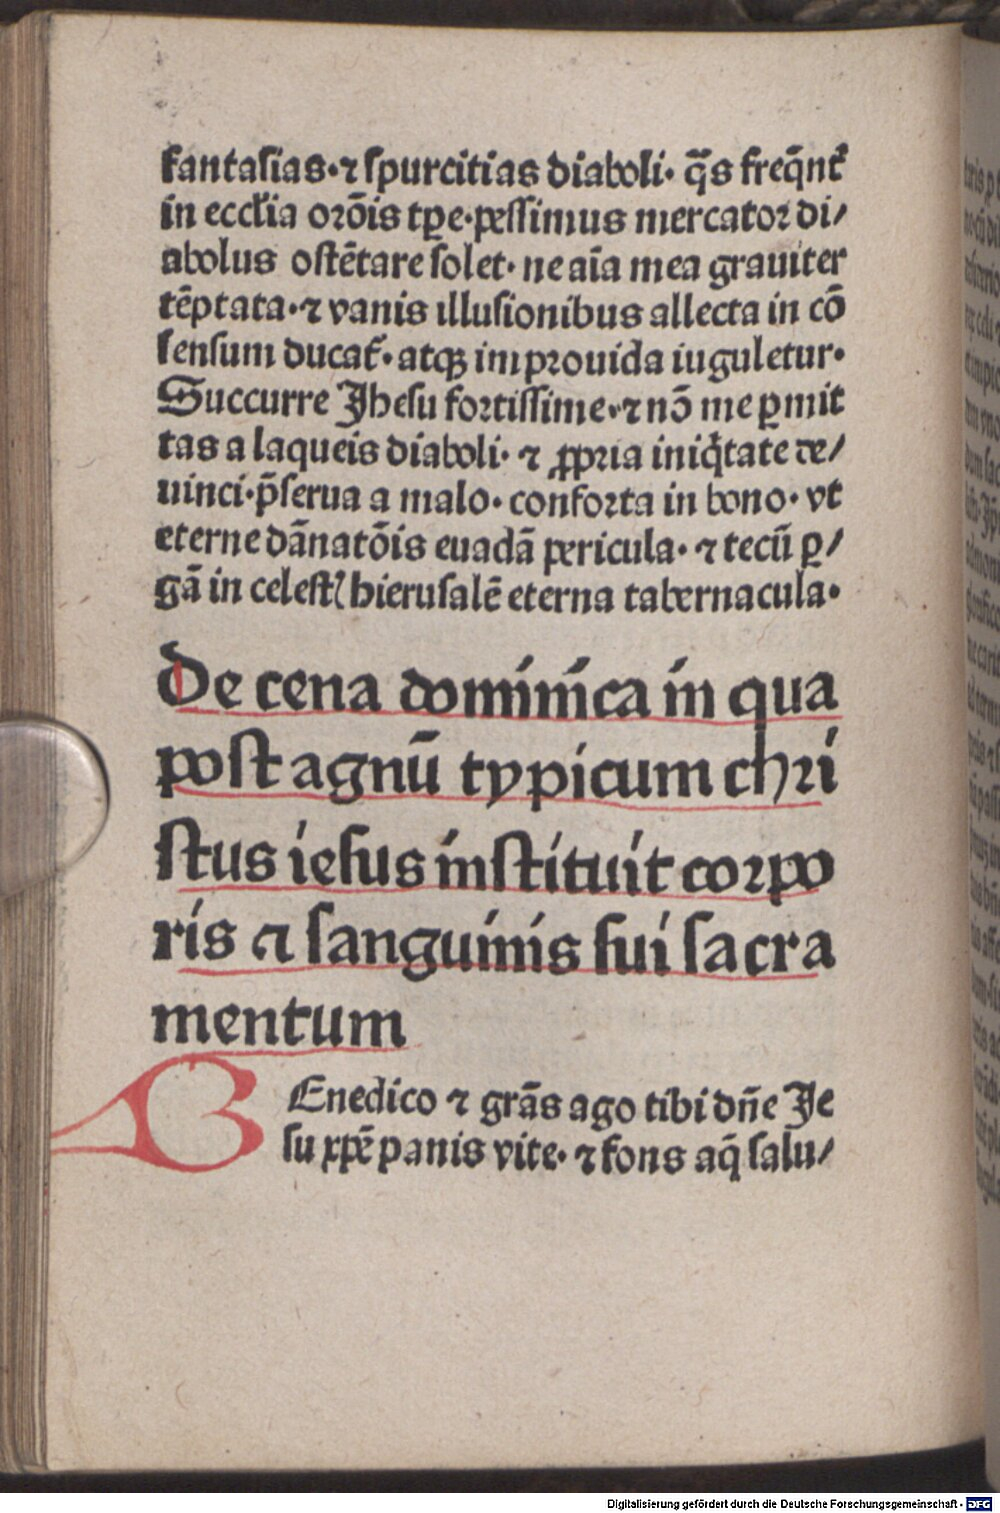 fantasias·⁊ spurcitias diaboli· q̄s freq̄nt᷑
in eccl'ia or̄ois tꝑe·pessimus mercator di/
abolus ostētare solet· ne aīa mea grauiter
tēptata·⁊ vanis illusionibus allecta in cō
sensum ducat᷑·atqꝫ improuida iuguletur·
Succurre Jhesu fortissime·⁊ nō me ꝑmit
tas a laqueis diaboli· ⁊ ꝓpria iniq̇tate de/
uinci·p̄serua a malo· conforta in bono· vt
eterne dānatōis euadā pericula· ⁊ tecū ꝑ/
gā in celestꝭ hierusalē eterna tabernacula·
De cena dominica in qua
post agnū typicum chri
stus iesus instituit corpo
ris ⁊ sanguinis sui sacra
mentum
BEnedico ⁊ grās ago tibi dn̄e Je
su xp̄e panis vite· ⁊ fons aq̄ salu/
Digitalisierung gefördert durch die Deutsche Forschungsgemeinschaft - DFG